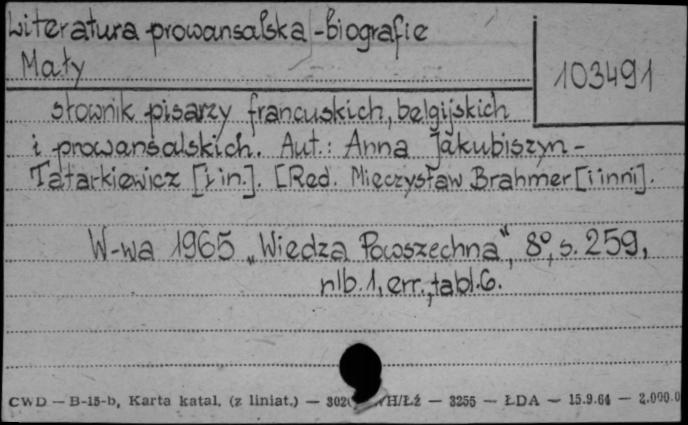 Literatura prowansalska - biografie
Mały
103491
słownik pisarzy francuskich, belgijskich
i prowansalskich. Aut.: Anna Jakubiszyn-
Tatarkiewicz [i in.]. [Red. Mieczysław Brahmer [i inni].
W-wa 1965 „Wiedza Powszechna", 8°, s. 259,
nlb. 1, err., tabl. 6.
CWD — B-15-b, Karta katal. (z liniat.) — 302 WH/ŁŻ — 3255 — ŁDA — 15.9.64 — 2.000.0